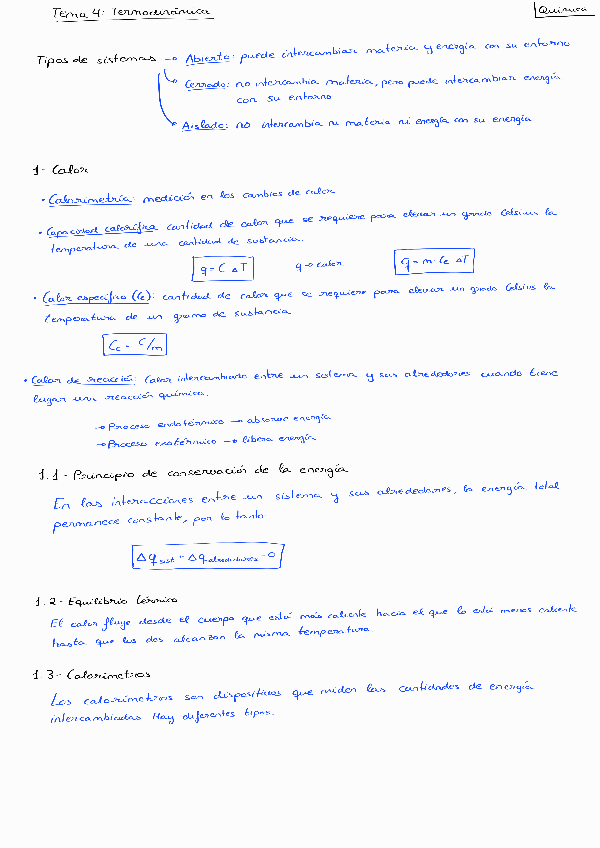 Tema 4: Termodinámica
Química
Tipos de sistemas → Abierto: puede intercambiar materia y energía con su entorno
Cerrado: no intercambia materia, pero puede intercambiar energía
con su entorno
Aislado: no intercambia ni materia ni energía con su energía
1- Calor
• Calorimetría: medición en los cambios de calor
• Capacidad calorífica cantidad de calor que se requiere para elevar un grado Celsius la
temperatura de una cantidad de sustancia.
q = C ΔT q → calor q = m · Ce ΔT
• Calor específico (Ce): cantidad de calor que se requiere para elevar un grado Celsius la
temperatura de un gramo de sustancia
Ce = C/m
• Calor de reacción: Calor intercambiado entre un sistema y sus alrededores cuando tiene
lugar una reacción química.
→ Proceso endotérmico → absorve energía
→ Proceso exotérmico → libera energía
1.1- Principio de conservación de la energía
En las interacciones entre un sistema y sus alrededores, la energía total
permanece constante, por lo tanto
Δq sist + Δq alrededores = 0
1.2- Equilibrio térmico
El calor fluye desde el cuerpo que está más caliente hacia el que lo está menos caliente
hasta que los dos alcanzan la misma temperatura
1.3- Calorímetros
Los calorímetros son dispositivos que miden las cantidades de energía
intercambiadas Hay diferentes tipos.